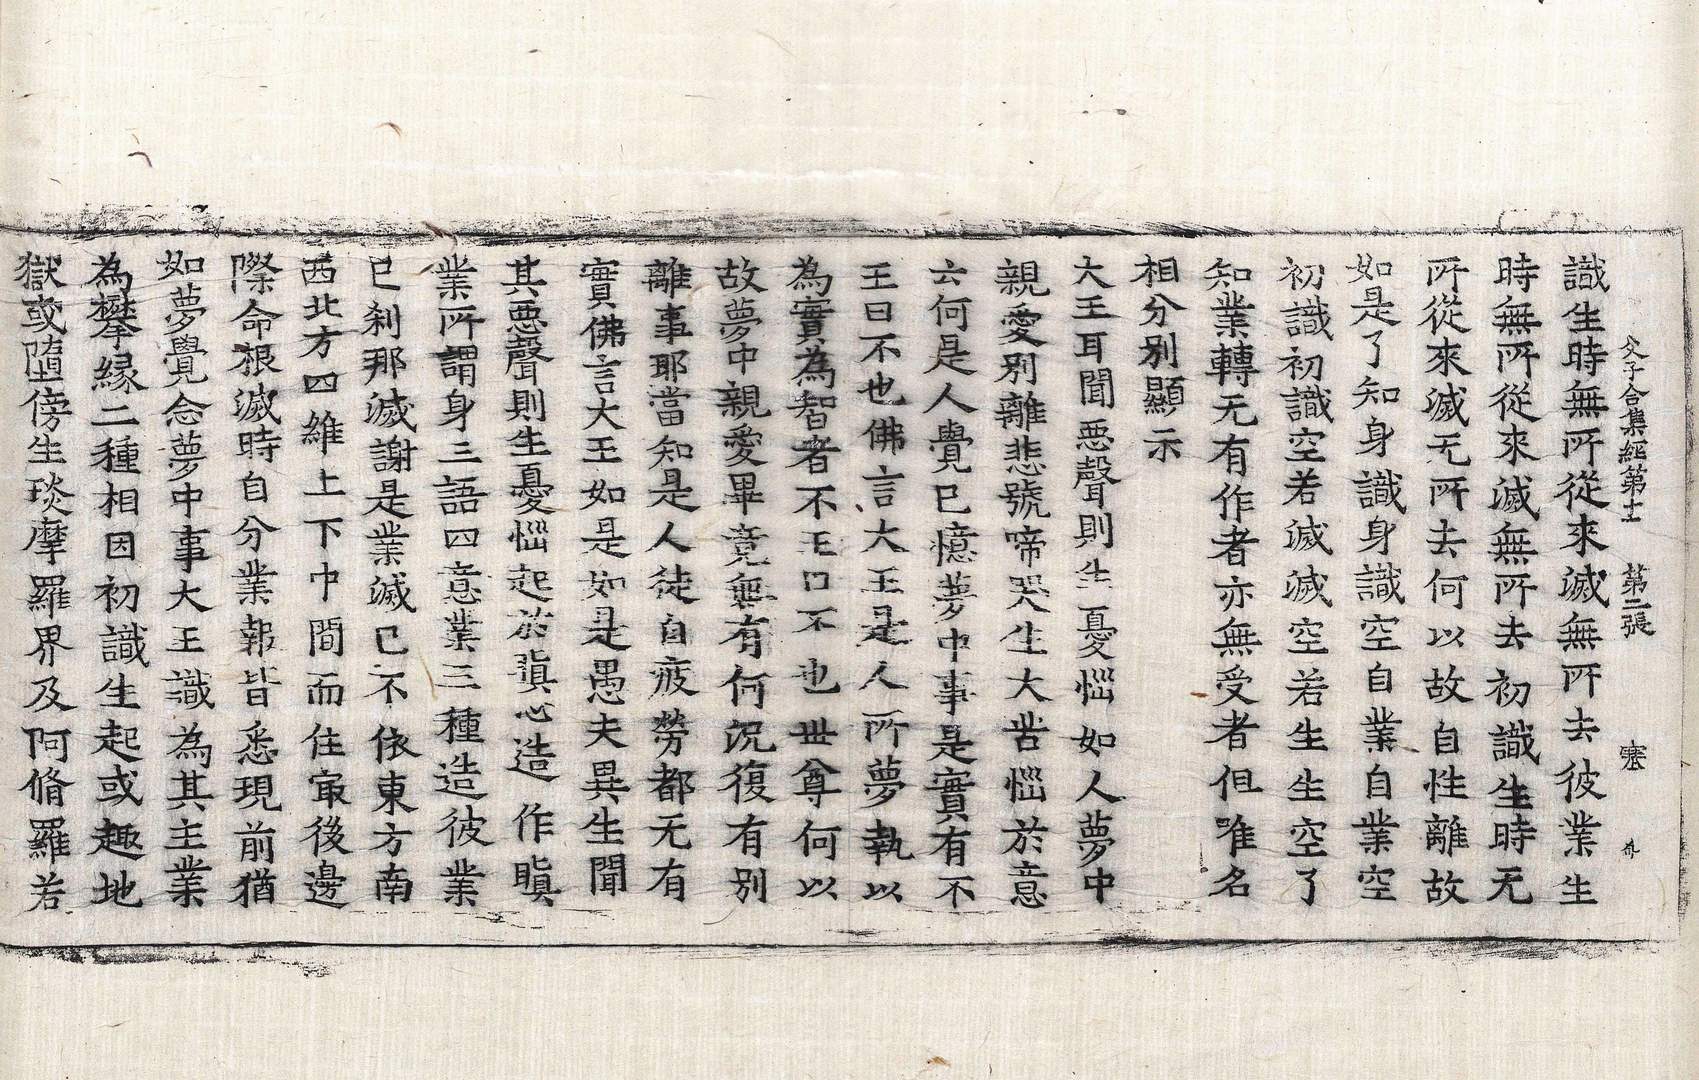 父子合集經第十 第二張 塞
識生時無所從來滅無所去彼業生
時無所從來滅無所去初識生時无
所從來滅无所去何以故自性離故
如是了知身識身識空自業自業空
初識初識空若滅滅空若生生空了
知業轉无有作者亦無受者但唯名
相分別顯示
大王耳聞惡聲則生憂惱如人夢中
親愛別離悲號啼哭生大苦惱於意
云何是人覺已憶夢中事是實有不
王曰不也佛言大王是人所夢執以
為實為智者不王曰不也世尊何以
故夢中親愛畢竟無有何況復有別
離事耶當知是人徒自疲勞都无有
實佛言大王如是如是愚夫異生聞
其惡聲則生憂惱起於瞋恚造作瞋
業所謂身三語四意業三種造彼業
已刹那滅謝是業滅已不依東方南
西北方四維上下中間而住㝡後邊
際命根滅時自分業報皆悉現前猶
如夢覺念夢中事大王識為其主業
為攀緣二種相因初識生起或趣地
獄或墮傍生琰摩羅界及阿脩羅若